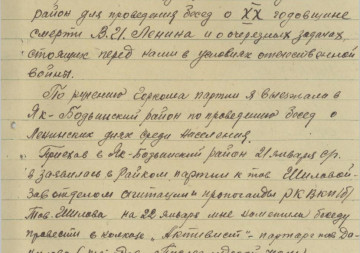 район для проведения бесед о XX годовщине
смерти В.И. Ленина и о очередных задачах
стоящих перед нами в условиях отечественной
войны.
По ручению Горкома партии я выезжала в
Як-Бодьинский район по проведению бесед о
Ленинских днях среди населения.
Приехав в Як-Бодьинский район 21 января с/г.
я заявилась в Райком партии к тов Шиловой-
зав отделом агитации и пропоганды РК ВКП(б)
Тов. Шилова на 22 января мне наметила беседу
провести в колхозе „Активист" - парторг тов Да-